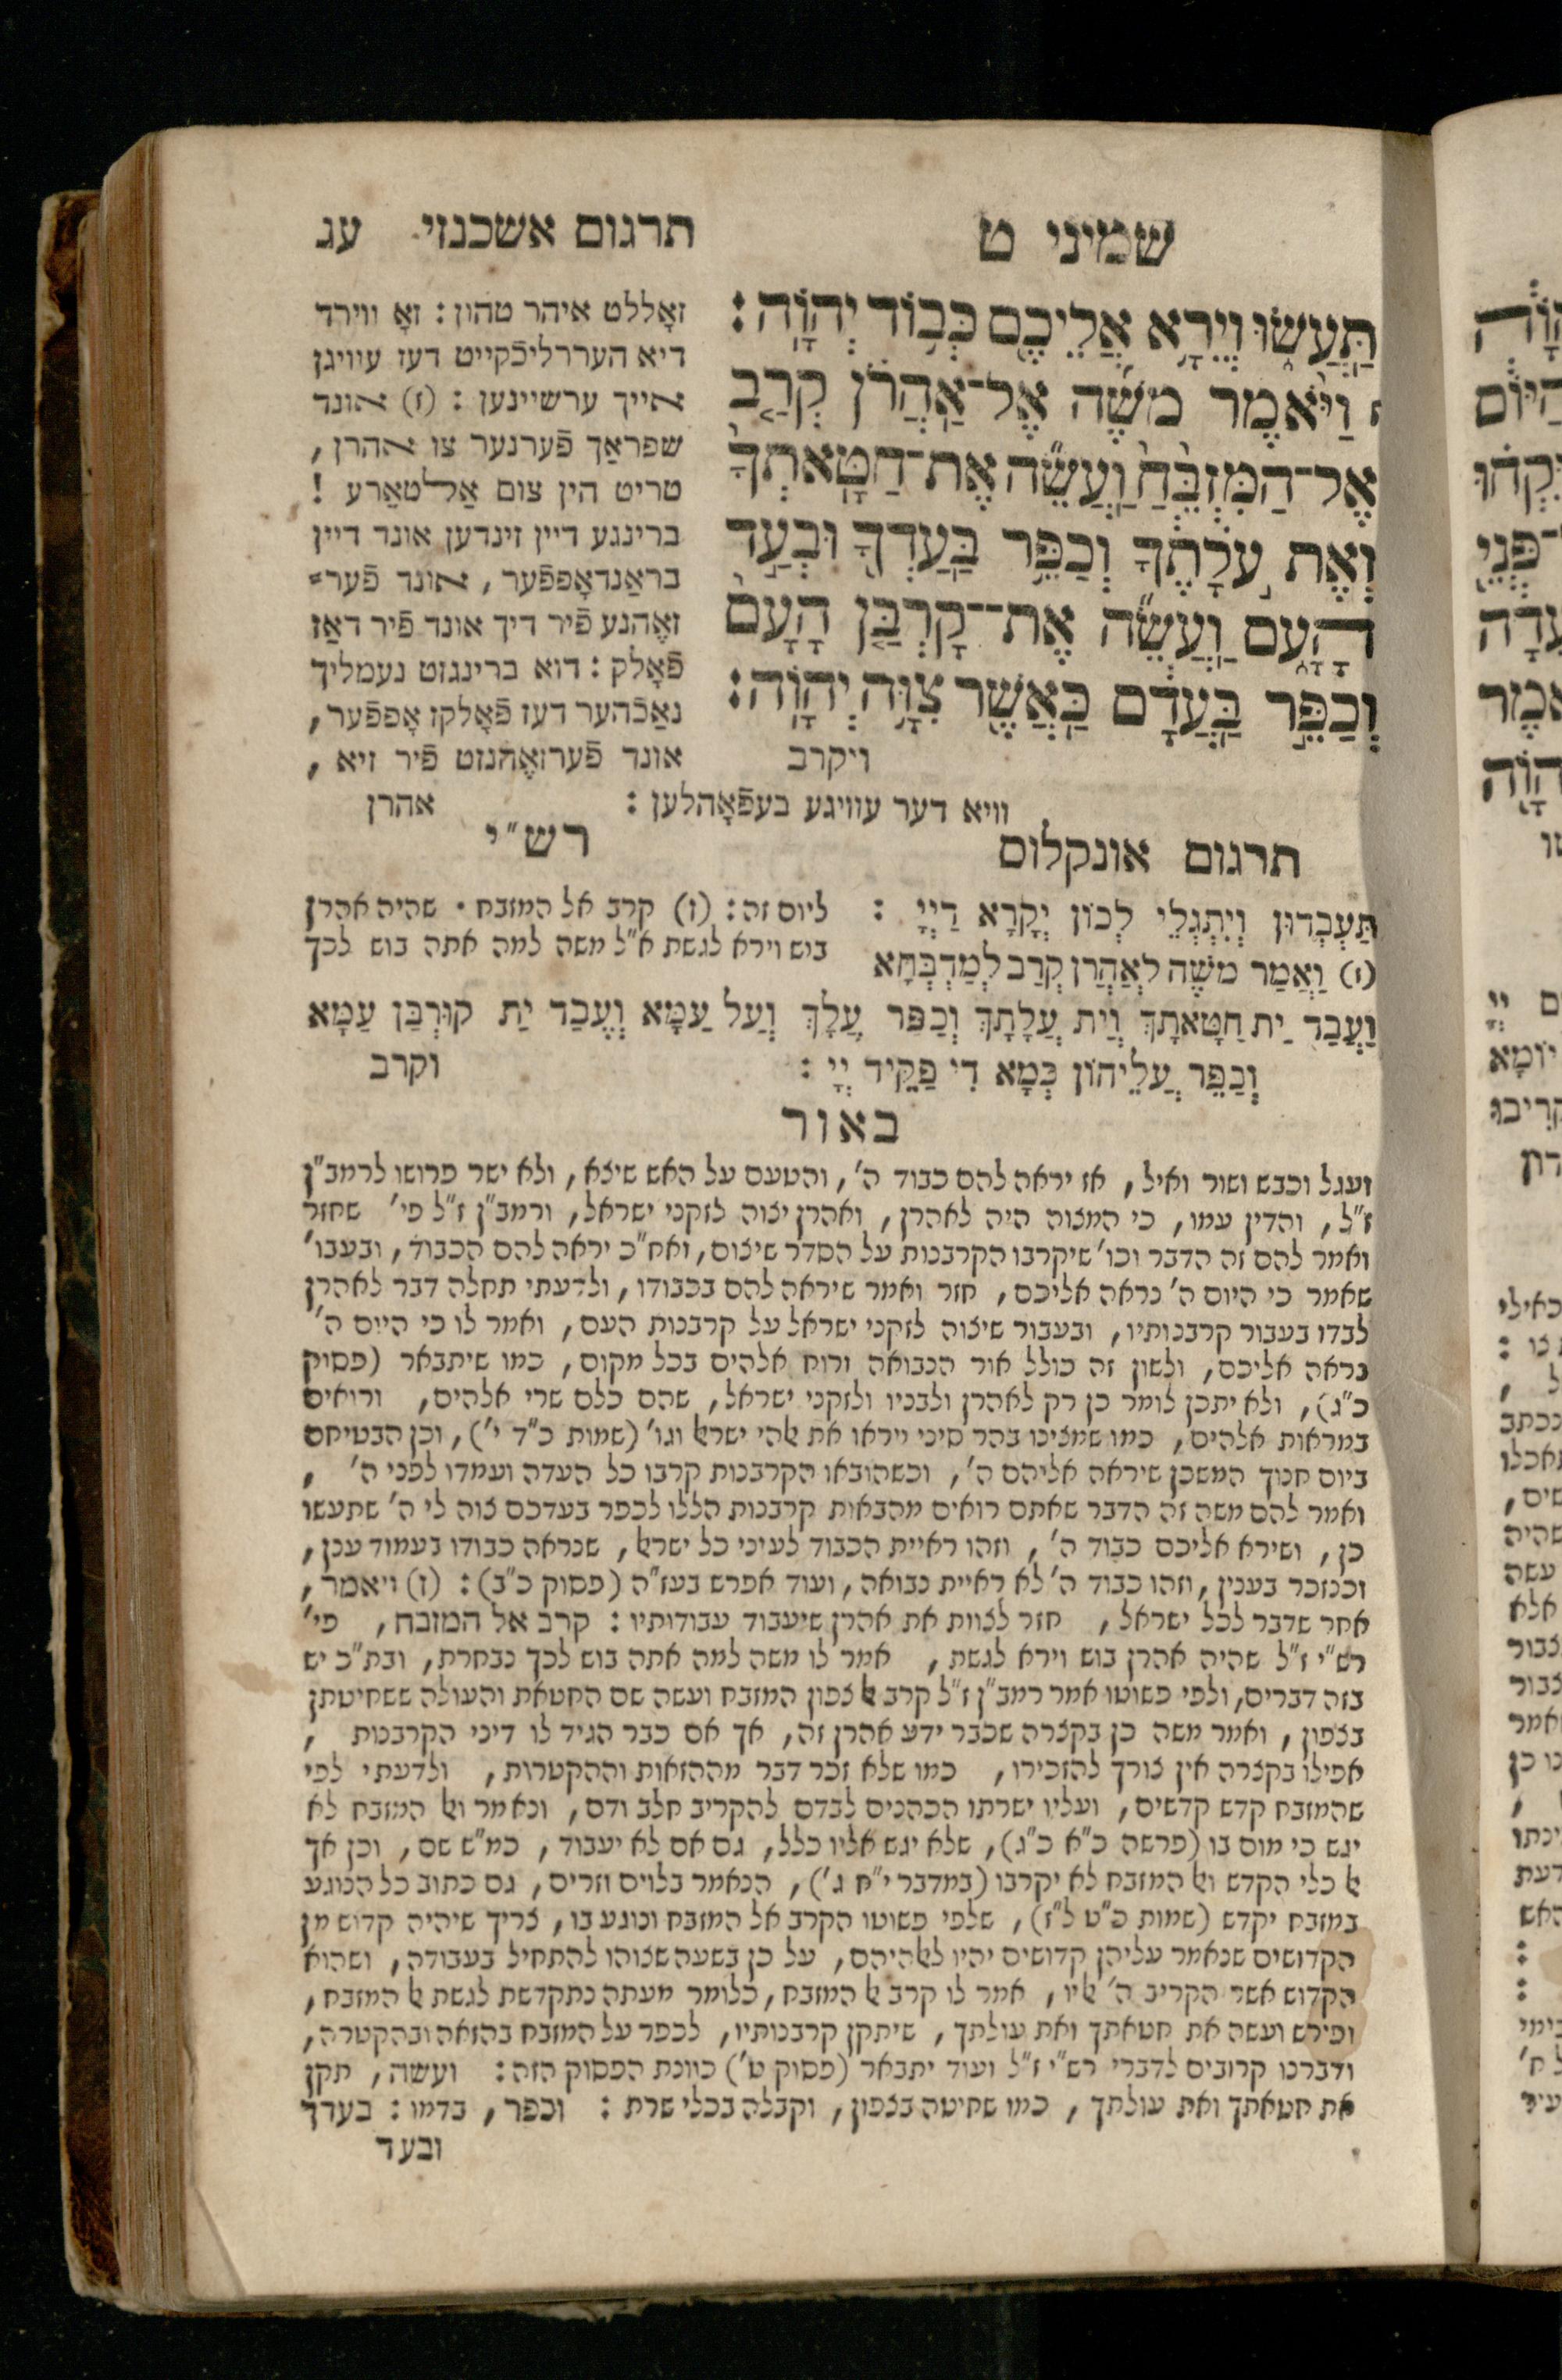 שמיני ט
תרגום אשכנזי עג
תַּעֲשׂוּ וְיֵרָא אֲלֵיכֶם כְּבוֹד יְהוָה :
וַיֹּאמֶר מֹשֶׁה אֶל־אַהֲרֹן קְרַב
אֶל־הַמִּזְבֵּחַ וַעֲשֵׂה אֶת־חַטָּאתְךָ
וְאֶת עֹלָתֶךָ וְכַפֵּר בַּעַדְךָ וּבְעַד
הָעָם וַעֲשֵׂה אֶת־קָרְבַּן הָעָם
וְכַפֵּר בַּעֲדָם כַּאֲשֶׁר צִוָּה יְהוָה :
ויקרב
זאָללט איהר טהון : זאָ ווירד
דיא העררליכֿקייט דעז עוויגן
אייך ערשיינען : (ז) אונד
שפראַך פֿערנער צו אהרן ,
טריט הין צום אַלטאַרע !
ברינגע דיין זינדען אונד דיין
בראַנדאָפפֿער , אונד פֿער=
זאָהנע פֿיר דיך אונד פֿיר דאַז
פֿאָלק : דוא ברינגזט נעמליך
נאַכֿהער דעז פֿאָלקז אָפפֿער ,
אונד פֿערזאָהנזט פֿיר זיא ,
וויא דער עוויגע בעפֿאָהלען :
אהרן
תרגום אונקלוס
תַּעְבְּדוּן וְיִתְגְּלֵי לְכוֹן יְקָרָא דַיְיָ :
(ז) וַאֲמַר מֹשֶׁה לְאַהֲרֹן קְרַב לְמַדְבְּחָא
וַעֲבַד יַת חַטָּאתָךְ וְיַת עֲלָתָךְ וְכַפַּר עֲלָךְ וְעַל עַמָּא וְעֲבַד יַת קוּרְבַּן עַמָּא
וְכַפֵּר עֲלֵיהוֹן כְּמָא דִי פַקִּיד יְיָ :
רש"י
ליום זה : (ז) קרב אל המזבח . שהיה אהרן
בוש וירא לגשת א"ל משה למה אתה בוש לכך
וקרב
באור
ועגל וכבש ושור ואיל , אז יראה להם כבוד ה' , והטעם על האש שיצא , ולא ישר פרושו לרמב"ן
ז"ל , והדין עמו , כי המצוה היה לאהרן , ואהרן יצוה לזקני ישראל , ורמב"ן ז"ל פי' שחזר
ואמר להם זה הדבר וכו' שיקרבו הקרבנות על הסדר שיצום , ואח"כ יראה להם הכבוד , ובעבו'
שאמר כי היום ה' נראה אליכם , חזר ואמר שיראה להם בכבודו , ולדעתי תחלה דבר לאהרן
לבדו בעבור קרבנותיו , ובעבור שיצוה לזקני ישראל על קרבנות העם , ואמר לו כי היום ה'
נראה אליכם , ולשון זה כולל אור הנבואה ורוח אלהים בכל מקום , כמו שיתבאר (פסוק
כ"ג) , ולא יתכן לומר כן רק לאהרן ולבניו ולזקני ישראל , שהם כלם שרי אלהים , ורואים
במראות אלהים , כמו שמצינו בהר סיני ויראו את אלהי ישראל וגו' (שמות כ"ד י') , וכן הבטיחם
ביום חנוך המשכן שיראה אליהם ה' , וכשהובאו הקרבנות קרבו כל העדה ועמדו לפני ה' ,
ואמר להם משה זה הדבר שאתם רואים מהבאות קרבנות הללו לכפר בעדכם צוה לי ה' שתעשו
כן , ושירא אליכם כבוד ה' , וזהו ראיית הכבוד לעיני כל ישראל , שנראה כבודו בעמוד ענן ,
וכנזכר בענין , וזהו כבוד ה' לא ראיית נבואה , ועוד אפרש בעז"ה (פסוק כ"ב) : (ז) ויאמר ,
אחר שדבר לכל ישראל , חזר לצוות את אהרן שיעבוד עבודותיו : קרב אל המזבח , פי'
רש"י ז"ל שהיה אהרן בוש וירא לגשת , אמר לו משה למה אתה בוש לכך נבחרת , ובת"כ יש
בזה דברים , ולפי פשוטו אמר רמב"ן ז"ל קרב אל צפון המזבח ועשה שם החטאת והעולה ששחיטתן
בצפון , ואמר משה כן בקצרה שכבר ידע אהרן זה , אך אם כבר הגיד לו דיני הקרבנות ,
אפילו בקצרה אין צורך להזכירו , כמו שלא זכר דבר מההזאות וההקטרות , ולדעתי לפי
שהמזבח קדש קדשים , ועליו ישרתו הכהנים לבדם להקריב חלב ודם , ונאמר ואל המזבח לא
יגש כי מום בו (פרשה כ"א כ"ג) , שלא יגש אליו כלל , גם אם לא יעבוד , כמ"ש שם , וכן אך
אל כלי הקדש ואל המזבח לא יקרבו (במדבר י"ח ג') , הנאמר בלוים וזרים , גם כתוב כל הנוגע
במזבח יקדש (שמות כ"ט ל"ז) , שלפי פשוטו הקרב אל המזבח ונוגע בו , צריך שיהיה קדוש מן
הקדושים שנאמר עליהן קדושים יהיו לאלהיהם , על כן בשעה שצוהו להתחיל בעבודה , ושהוא
הקדוש אשר הקריב ה' אליו , אמר לו קרב אל המזבח , כלומר מעתה נתקדשת לגשת אל המזבח ,
ופירש ועשה את חטאתך ואת עולתך , שיתקן קרבנותיו , לכפר על המזבח בהזאה ובהקטרה ,
ודברנו קרובים לדברי רש"י ז"ל ועוד יתבאר (פסוק ט') כוונת הפסוק הזה : ועשה , תקן
את חטאתך ואת עולתך , כמו שחיטה בצפון , וקבלה בכלי שרת : וכפר , בדמו : בעדך
ובעד